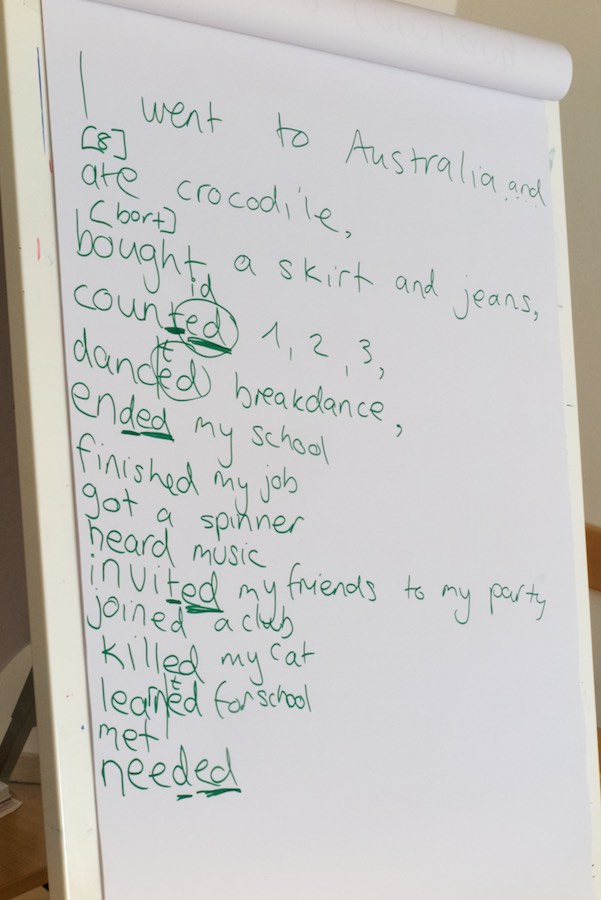 I went to Australia and
[8]
ate crocodile,
[bort]
bought a skirt and jeans,
id
counted 1, 2, 3,
t
danced breakdance,
ended my school
finished my job
got a spinner
heard music
invited my friends to my party
joined a club
killed my cat
t
learned for school
met
needed